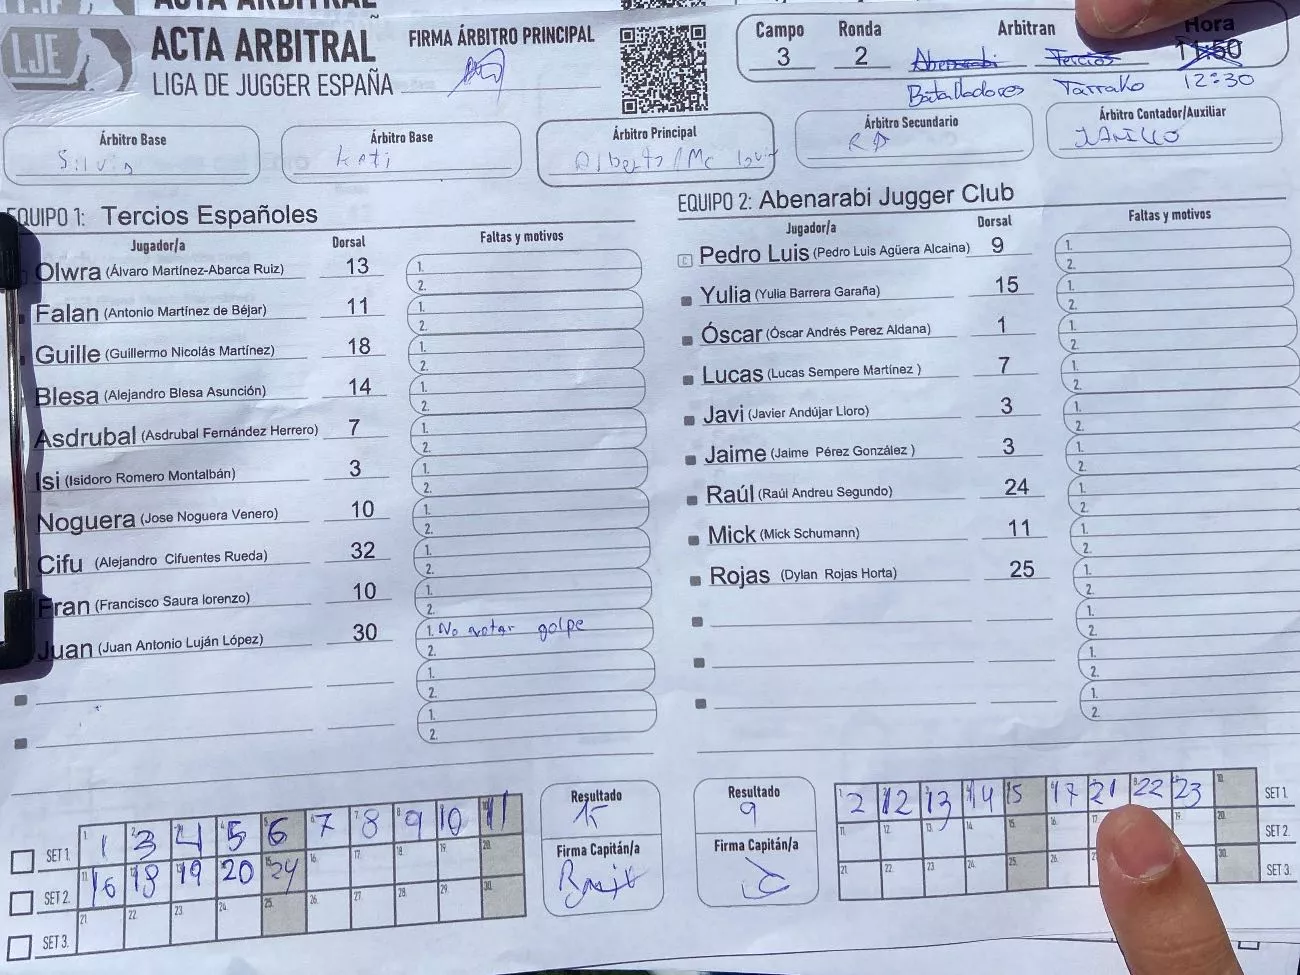 ACTA ARBITRAL
LJE
ACTA ARBITRAL
LIGA DE JUGGER ESPAÑA
FIRMA ÁRBITRO PRINCIPAL
Campo Ronda Arbitran Hora
3 2 Abenarabi Tercios 11:50
Batalladores Tarrako 12:30
Árbitro Base
Silvia
Árbitro Base
Kati
Árbitro Principal
Alberto/Mc
Árbitro Secundario
Árbitro Contador/Auxiliar
JANILLO
EQUIPO 1: Tercios Españoles
Jugador/a Dorsal Faltas y motivos
Olwra (Álvaro Martínez-Abarca Ruiz) 13 1.
2.
Falan (Antonio Martínez de Béjar) 11 1.
2.
Guille (Guillermo Nicolás Martínez) 18 1.
2.
Blesa (Alejandro Blesa Asunción) 14 1.
2.
Asdrubal (Asdrubal Fernández Herrero) 7 1.
2.
Isi (Isidoro Romero Montalbán) 3 1.
2.
Noguera (Jose Noguera Venero) 10 1.
2.
Cifu (Alejandro Cifuentes Rueda) 32 1.
2.
Fran (Francisco Saura lorenzo) 10 1.
2.
Juan (Juan Antonio Luján López) 30 1. No notar golpe
2.
1.
2.
1.
2.
EQUIPO 2: Abenarabi Jugger Club
Jugador/a Dorsal Faltas y motivos
C Pedro Luis (Pedro Luis Agüera Alcaina) 9 1.
2.
Yulia (Yulia Barrera Garaña) 15 1.
2.
Óscar (Óscar Andrés Perez Aldana) 1 1.
2.
Lucas (Lucas Sempere Martínez ) 7 1.
2.
Javi (Javier Andújar Lloro) 3 1.
2.
Jaime (Jaime Pérez González ) 3 1.
2.
Raúl (Raúl Andreu Segundo) 24 1.
2.
Mick (Mick Schumann) 11 1.
2.
Rojas (Dylan Rojas Horta) 25 1.
2.
1.
2.
1.
2.
1.
2.
SET 1. 1 3 4 5 6 7 8 9 10 11
SET 2. 16 18 19 20 24
16. 17. 18. 19. 20.
SET 3. 21. 22. 23. 24. 25. 26. 27. 28. 29. 30.
Resultado
15
Firma Capitán/a
Resultado
9
Firma Capitán/a
2 12 13 14 15 17 21 22 23 10. SET 1.
11. 12. 13. 14. 15. 16. 17. 19. 20. SET 2.
21. 22. 23. 24. 25. 26. 30. SET 3.